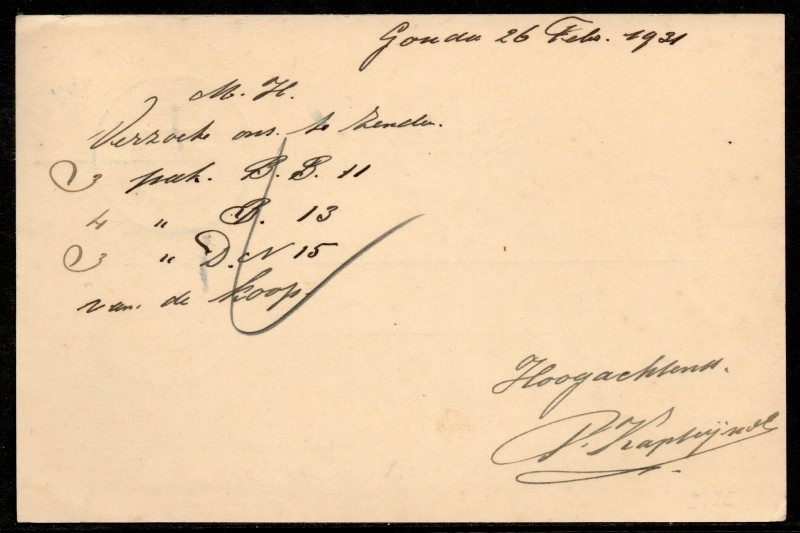 Gouda 26 Febr. 1931
M. H.
Verzoeke ons. te zenden.
3 pak. B. B. 11
4 " B. 13
3 " D. N 15
van de koop.
Hoogachtend.